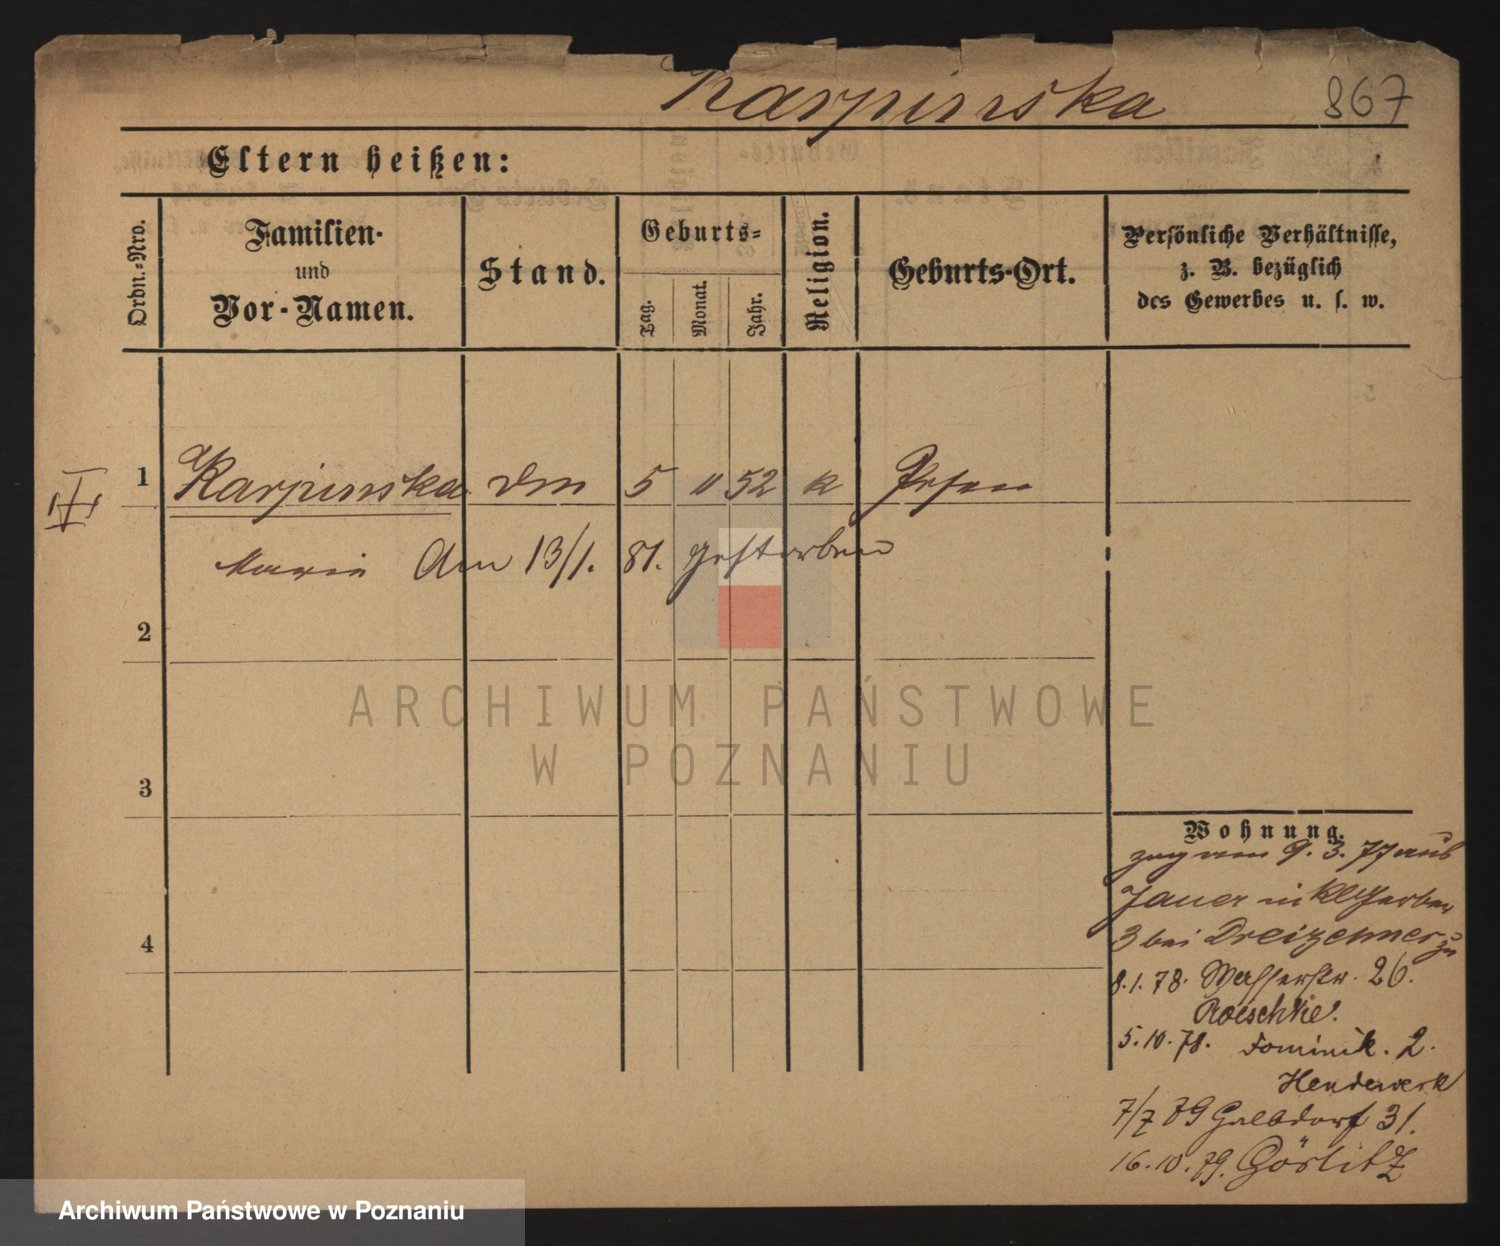 Karpinska 867
Eltern heißen:
Ordn.=Nro.
Familien-
und
Vor-Namen.
Stand.
Geburts=
Tag.
Monat.
Jahr.
Religion.
Geburts-Ort.
Persönliche Verhältnisse,
z. B. bezüglich
des Gewerbes u. s. w.
1 Karpinska 5 11 52 k Posen
Marie Am 13/1. 81. gestorben
2
3
4
Wohnung.
9. 3. 77 aus
Jauer in Kl Gerber
3 bei Dreizehner
8. 1. 78. Wasserstr. 26.
5. 10. 78. Dominik. 2.
7/7 79 Halbdorf 31.
16. 10. 79. Görlitz
ARCHIWUM PAŃSTWOWE
W POZNANIU
Archiwum Państwowe w Poznaniu